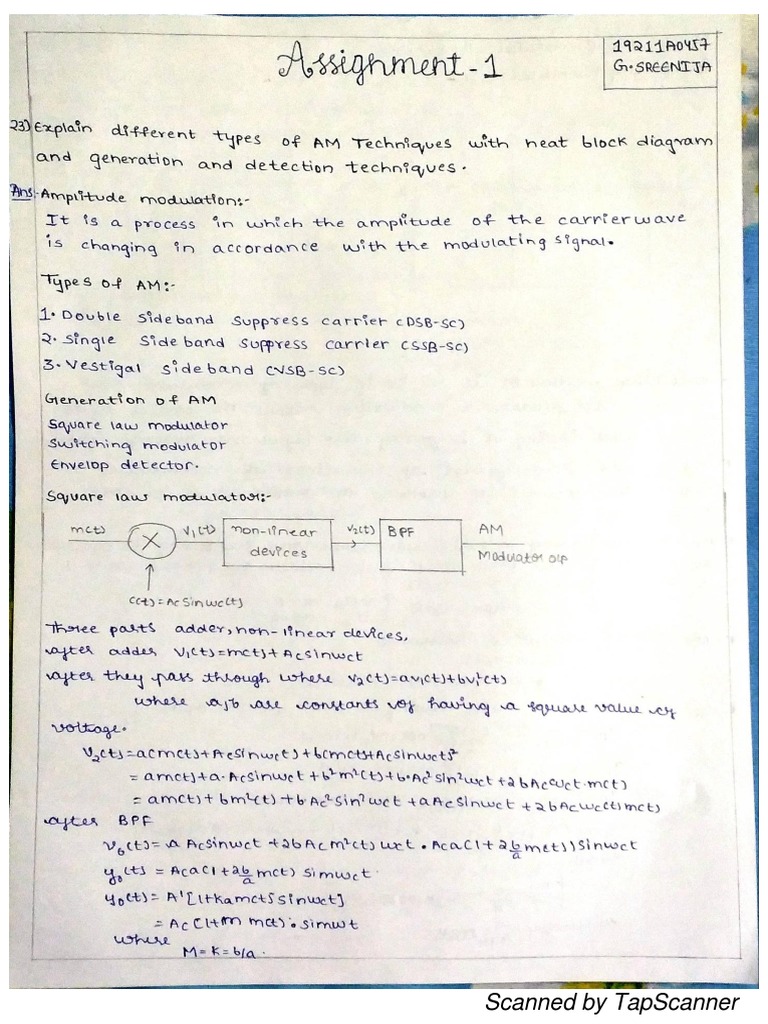 Assignment-1
19211A0457
G. SREENIJA
23) Explain different types of AM Techniques with neat block diagram
and generation and detection techniques.
Ans:- Amplitude modulation:-
It is a process in which the amplitude of the carrier wave
is changing in accordance with the modulating signal.
Types of AM:-
1. Double sideband suppress carrier (DSB-SC)
2. Single sideband suppress carrier (SSB-SC)
3. Vestigal sideband (VSB-SC)
Generation of AM
Square law modulator
Switching modulator
Envelop detector.
Square law modulator:-
m(t) X v₁(t) non-linear devices v₂(t) BPF AM Modulator o/p
c(t)=Ac sinwc(t)
Three parts adder, non-linear devices,
after adder v₁(t)=m(t)+Acsinwct
after they pass through where v₂(t)=av₁(t)+bv₁²(t)
where a,b are constants of having a square value of
voltage.
v₂(t)=a(m(t)+Acsinwct)+b(m(t)+Acsinwct)²
=am(t)+a.Acsinwct+b²m²(t)+b.Ac²sin²wct+2bAcwct.m(t)
=am(t)+bm²(t)+b.Ac²sin²wct+aAcsinwct+2bAcwc(t)m(t)
after BPF
v₀(t)=a Acsinwct+2bAcm²(t)wct.Aca(1+2b/a m(t))sinwct
y₀(t)=Aca(1+2b/a m(t) simwct
y₀(t)=A'[1+kam(t)sinwct]
=Ac(1+m m(t).simwt
where
M=K=b/a.
Scanned by TapScanner